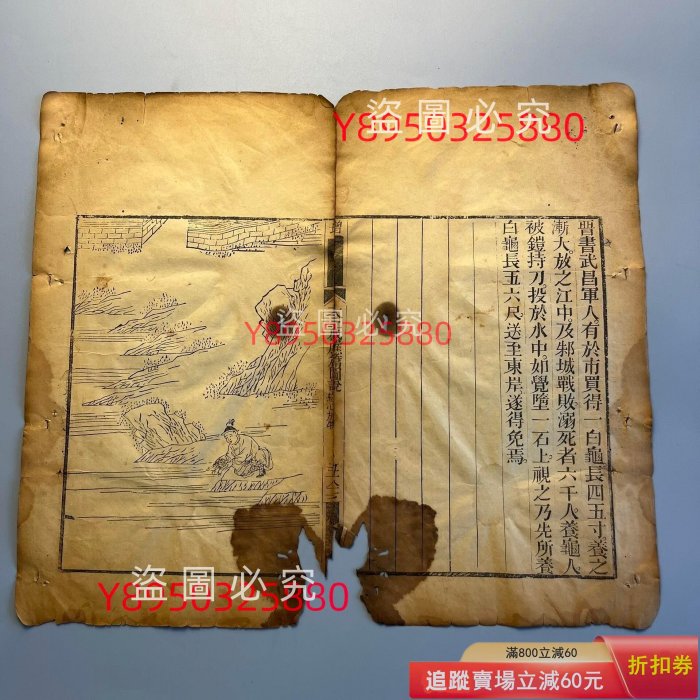 晋書武昌軍人有於市買得一白龜長四五寸養之
漸大放之江中及邾城戰敗溺死者六千人養龜人
被鎧持刀投於水中如覺墮一石上視之乃先所養
白龜長五六尺送至東岸遂得免焉
盜圖必究
Y8950325880
盜圖必究
Y8950325880
盜圖必究
Y8950325880
滿800立減60
追蹤賣場立減60元
折扣券